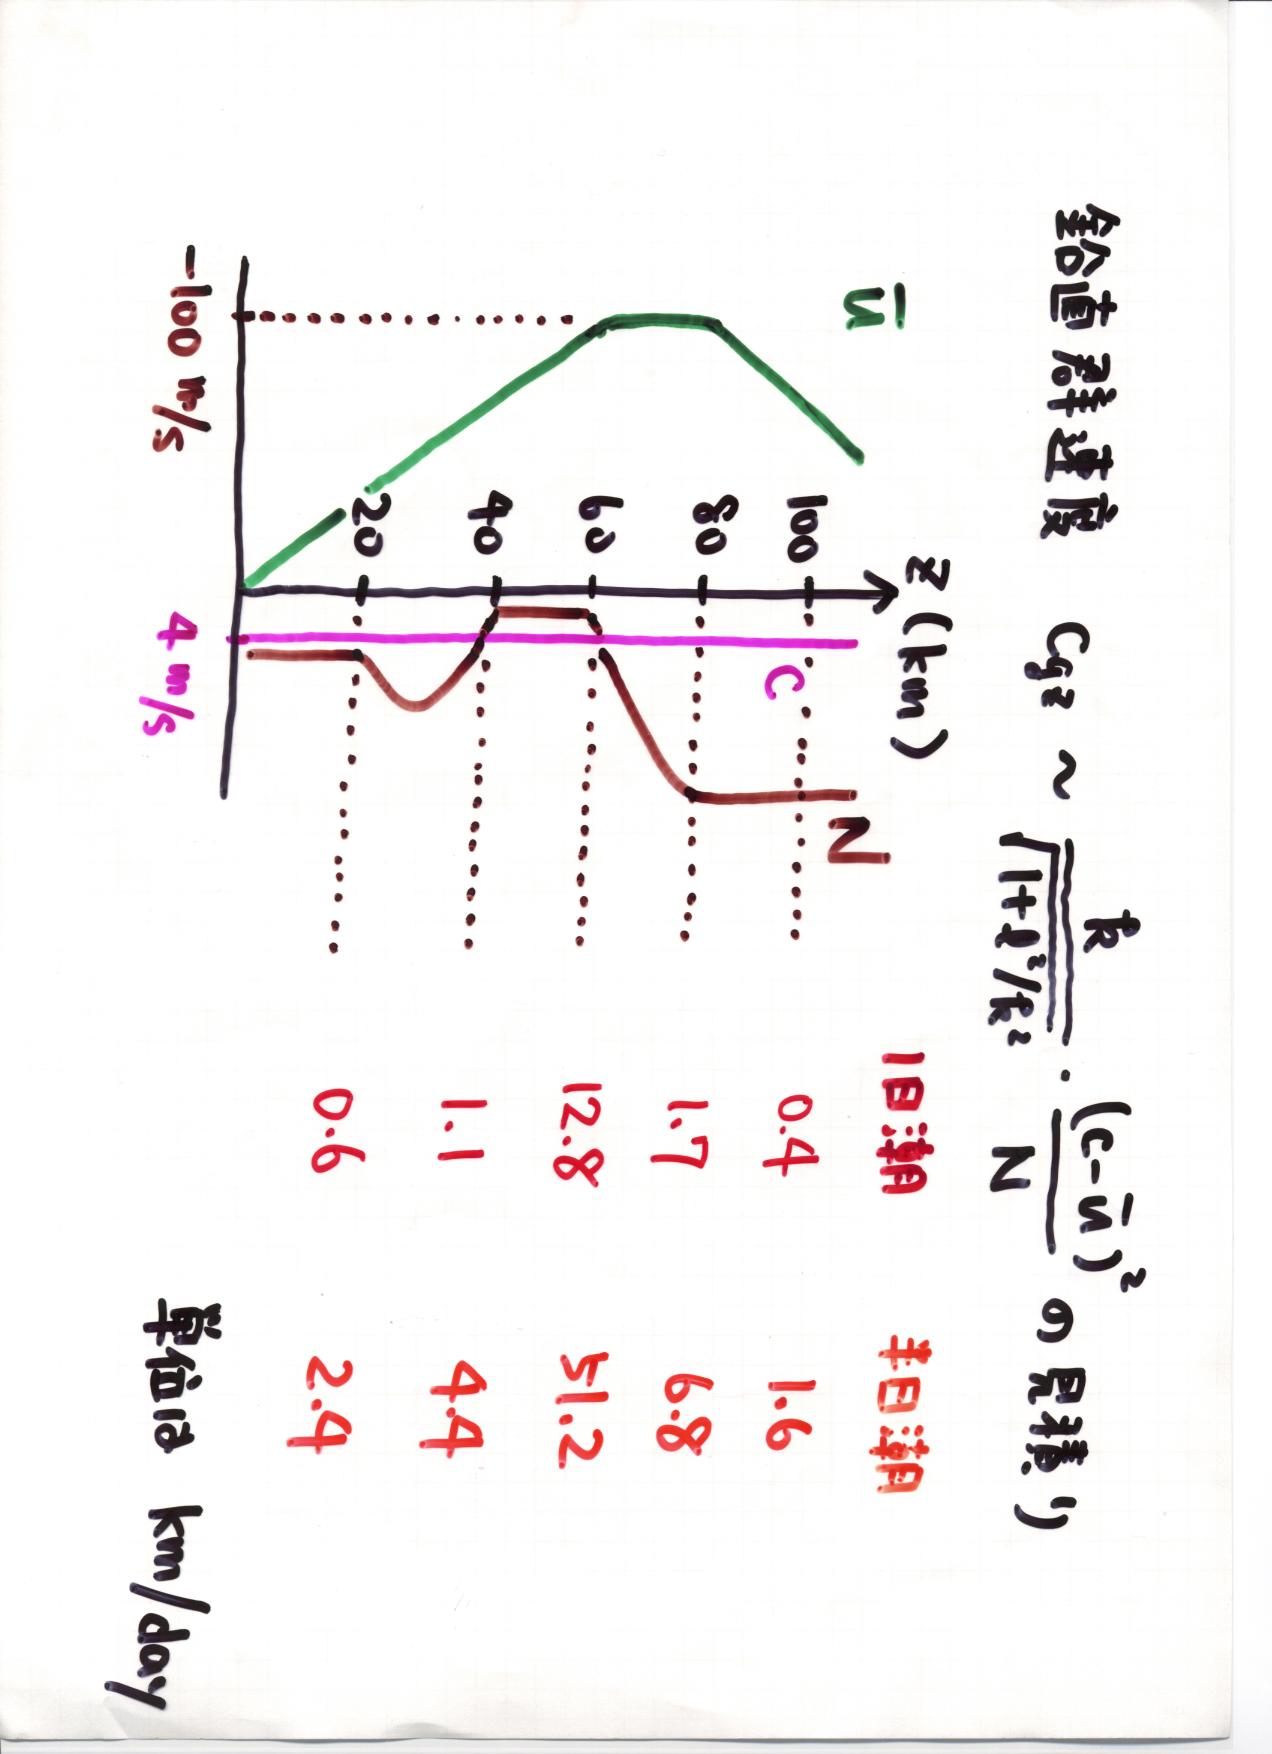 鉛直群速度 Cgz ~ k/√(1+l²/k²) · (c-ū)²/N の見積り
Z (km)
1日潮 半日潮
ū
C
N
100 0.4 1.6
80 1.7 6.8
60 12.8 51.2
40 1.1 4.4
20 0.6 2.4
-100 m/s 4 m/s
単位は km/day